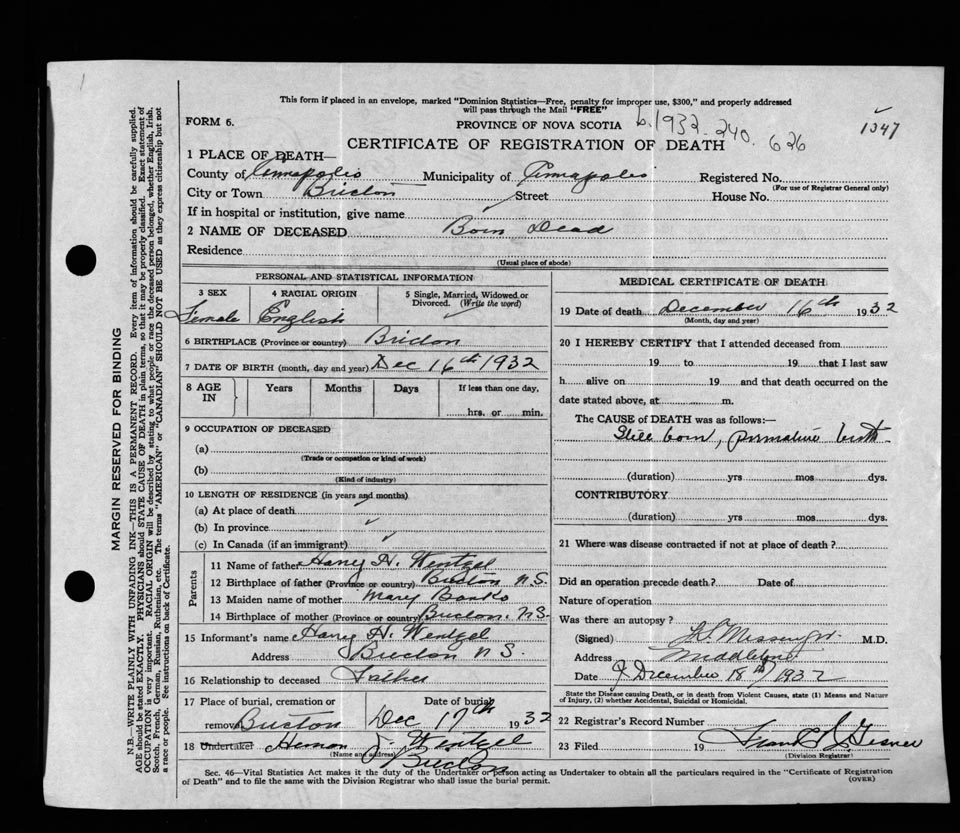 1
This form if placed in an envelope, marked "Dominion Statistics—Free, penalty for improper use, $300," and properly addressed
will pass through the Mail "FREE"
FORM 6.
PROVINCE OF NOVA SCOTIA
b.1932-240. 626
1347
CERTIFICATE OF REGISTRATION OF DEATH
1 PLACE OF DEATH—
County of Annapolis Municipality of Annapolis Registered No.
(For use of Registrar General only)
City or Town Bricton Street House No.
If in hospital or institution, give name
2 NAME OF DECEASED Born Dead
Residence
(Usual place of abode)
PERSONAL AND STATISTICAL INFORMATION
3 SEX 4 RACIAL ORIGIN 5 Single, Married, Widowed or Divorced. (Write the word)
Female English
6 BIRTHPLACE (Province or country) Bricton
7 DATE OF BIRTH (month, day and year) Dec 16th 1932
8 AGE IN Years Months Days If less than one day,
hrs. or min.
9 OCCUPATION OF DECEASED
(a)
(Trade or occupation or kind of work)
(b)
(Kind of industry)
10 LENGTH OF RESIDENCE (in years and months)
(a) At place of death
(b) In province
(c) In Canada (if an immigrant)
Parents
11 Name of father Harry H. Wentzel
12 Birthplace of father (Province or country) Bricton N.S.
13 Maiden name of mother Mary Banks
14 Birthplace of mother (Province or country) Bricton, N.S.
15 Informant's name Harry H. Wentzel
Address Bricton N S.
16 Relationship to deceased Father
17 Place of burial, cremation or removal Bricton Date of burial Dec 17th 1932
18 Undertaker Wentzel
(Name and address)
Bricton
MEDICAL CERTIFICATE OF DEATH
19 Date of death December 16th 1932
(Month, day and year)
20 I HEREBY CERTIFY that I attended deceased from
19 to 19 that I last saw
h alive on 19 and that death occurred on the
date stated above, at m.
The CAUSE OF DEATH was as follows:—
Still born, premature birth
(duration) yrs mos dys.
CONTRIBUTORY
(duration) yrs mos dys.
21 Where was disease contracted if not at place of death?
Did an operation precede death? Date of
Nature of operation
Was there an autopsy?
(Signed) Messenger M.D.
Address Middleton
Date December 18th 1932
State the Disease causing Death, or in death from Violent Causes, state (1) Means and Nature
of Injury, (2) whether Accidental, Suicidal or Homicidal.
22 Registrar's Record Number
23 Filed 19 Frank Gesner
(Division Registrar)
Sec. 46—Vital Statistics Act makes it the duty of the Undertaker or person acting as Undertaker to obtain all the particulars required in the "Certificate of Registration
of Death" and to file the same with the Division Registrar who shall issue the burial permit.
(OVER)
MARGIN RESERVED FOR BINDING
N.B.—WRITE PLAINLY WITH UNFADING INK—THIS IS A PERMANENT RECORD. Every item of information should be carefully supplied.
AGE should be stated EXACTLY. PHYSICIANS should STATE CAUSE OF DEATH in plain terms, so that it may be properly classified. Exact statement of
OCCUPATION is very important. RACIAL ORIGIN will be described by stating to what people or race the deceased person belonged, whether English, Irish,
Scotch, French, German, Russian, Ruthenian, etc. The terms "AMERICAN" or "CANADIAN" SHOULD NOT BE USED as they express citizenship but not
a race or people. See instructions on back of Certificate.